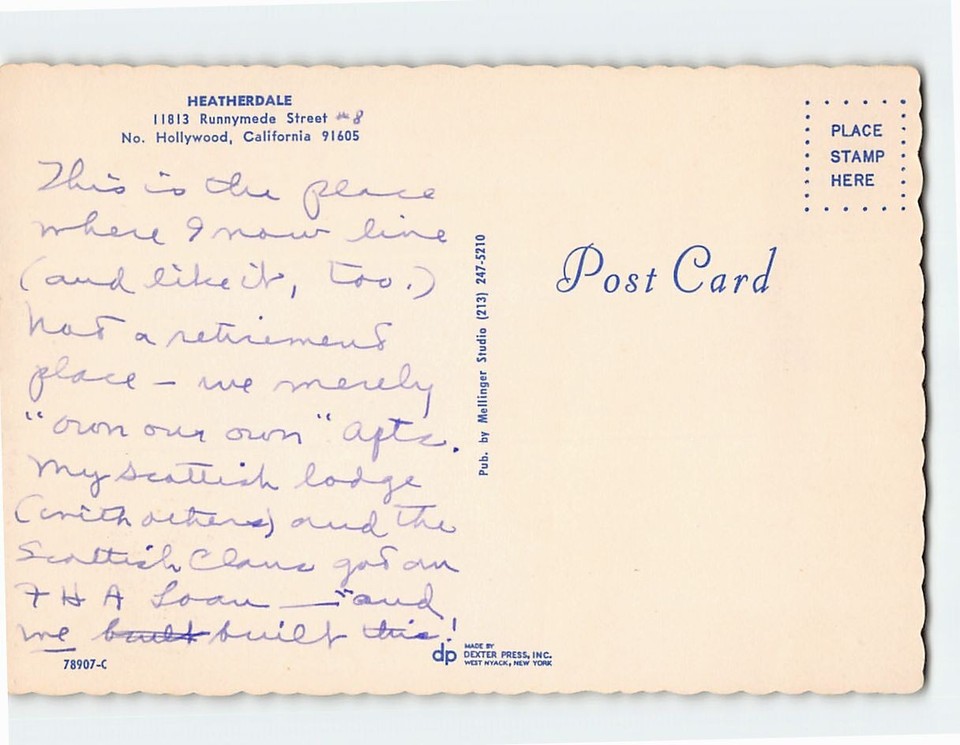 HEATHERDALE
11813 Runnymede Street #8
No. Hollywood, California 91605
This is the place
where I now live
(and like it, too.)
Not a retirement
place — we merely
"own our own" apts.
My Scottish lodge
(with others) and the
Scottish Clans got an
FHA Loan — "and
we built built this!
78907-C
Pub. by Mellinger Studio (213) 247-5210
dp
MADE BY
DEXTER PRESS, INC.
WEST NYACK, NEW YORK
Post Card
PLACE
STAMP
HERE